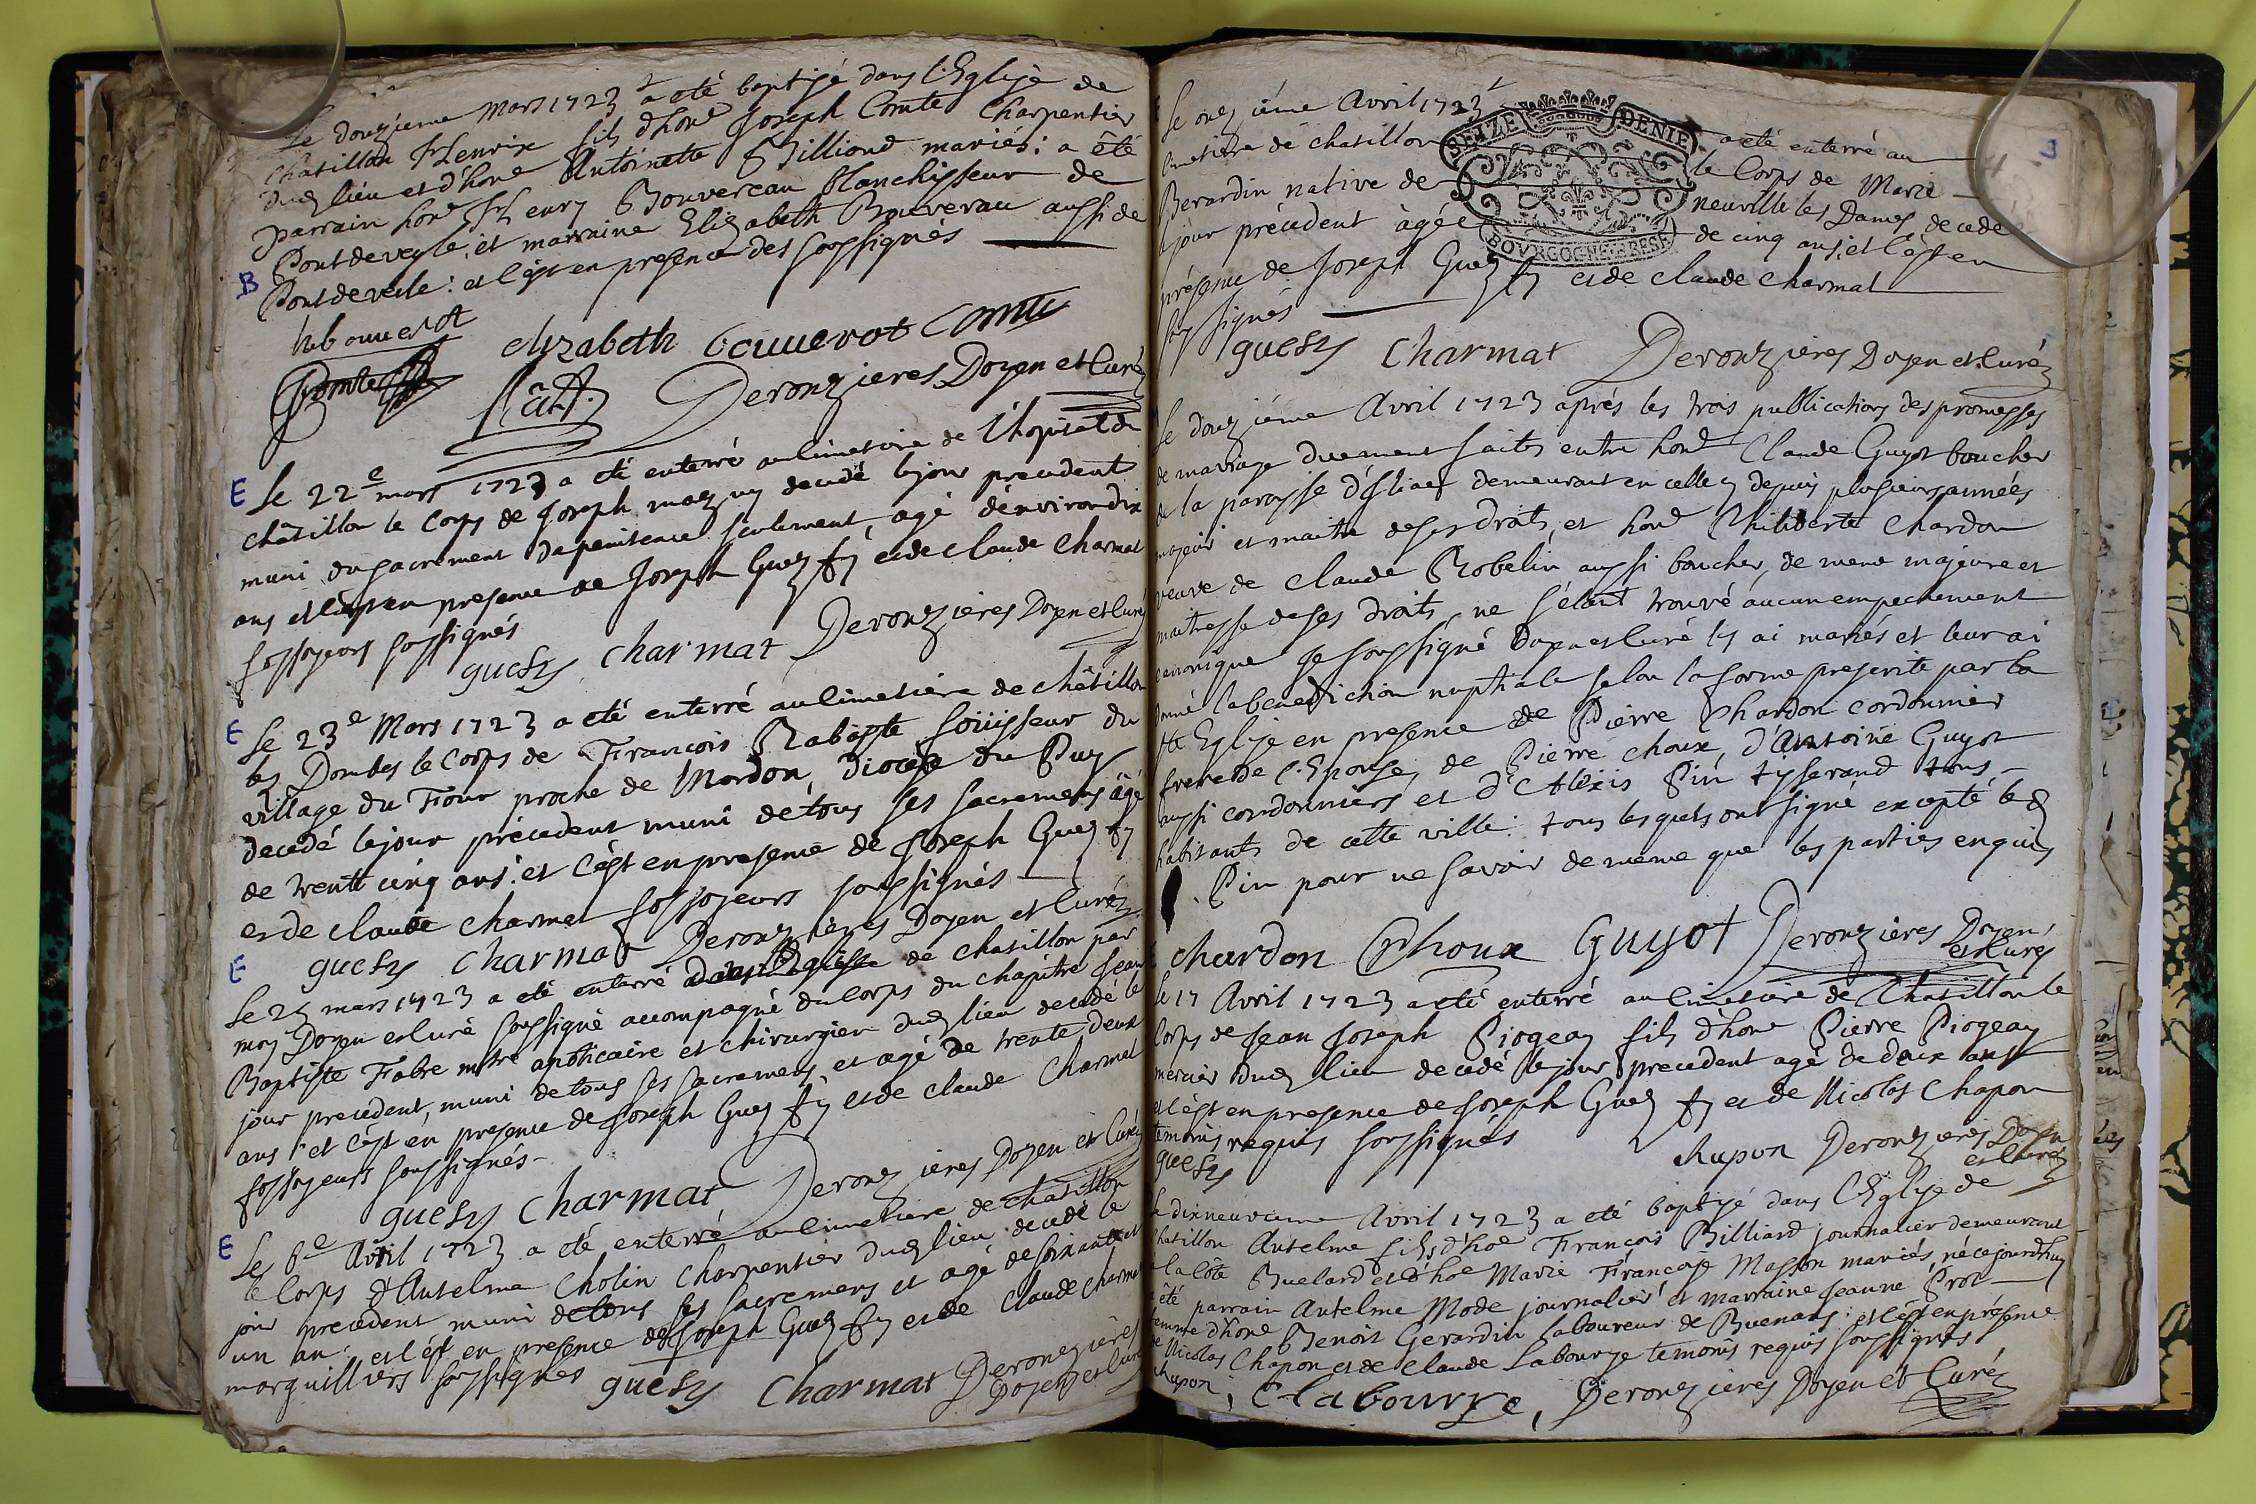 Le douzieme Mars 1723 a été baptizé dans l'Eglise de
Chatillon Henrix fils d'hone Joseph Comte Charpentier
dud lieu et d'hone Antoinette Billiond mariés: a été
parrain hone henry Bouvereau blanchisseur de
Pontdeveyle, et marraine Elizabeth Bouverau aussi de
Pontdevele: et c'est en presence des soussignés
B
hbouverot
elizabeth bouuerot Comte
Comte
Deronzieres Doyen et Curé
E
Le 22e mars 1723 a été enterré au cimetoire de l'hopital de
châtillon le Corps de Joseph decedé le jour precedent
muni du sacrement de penitence seulement, agé d'environ dix
ans et c'est en presence de Joseph Guez et de claude Charmat
fossoyeurs soussignés
guesy charmat Deronzieres Doyen et Curé
E
Le 23e Mars 1723 a été enterré au Cimetiére de châtillon
les Dombes le Corps de François Rabaste du
village du Four proche de Mordon, Diocese du Puy
decedé le jour précedent muni de tous ses sacremens âgé
de trente cinq ans: et c'est en presence de Joseph Guez
et de claude Charmat fossoyeurs soussignés
guesy charmat Deronzieres Doyen et Curé
E
Le 25 mars 1723 a été enterré dans l'Eglise de chatillon par
moy Doyen et Curé soussigné accompagné du Corps du chapitre Jean
Baptiste Fabre mtre apoticaire et chirurgien dud lieu decedé le
jour precedent, muni de tous ses sacremens et agé de trente deux
ans: et c'est en presence de Joseph Guez et de claude Charmat
fossoyeurs soussignés
guesy charmat Deronzieres Doyen et Curé
E
Le 6e Avril 1723 a été enterré au cimetiere de chatillon
le Corps d'Antelme Cholin Charpentier dud lieu decedé le
jour precedent muni de tous ses sacremens et agé de soixante et
un an: et c'est en presence de Joseph Guez et de claude Charmat
marguilliers soussignés
guesy charmat Deronzieres
Doyen et Curé
3
Le onzième Avril 1723 a été enterré au
cimetiere de chatillon le Corps de Marie
Berardin native de neuville les Dames decedé
le jour précedent agée de cinq ans, et c'est en
présence de Joseph Guez et de claude Charmat
soussignés
SEIZE DENIE
BOVRGOGNE BRESE
guesy Charmat Deronzieres Doyen et Curé
Le douzième Avril 1723 aprés les trois publications des promesses
de mariage duement faites entre hone Claude Guyot boucher
de la paroisse demeurant en celle cy depuis plusieurs années
majeur et maitre de ses droits, et hone Philiberte Chardon
veuve de Claude Robelin aussi boucher, de meme majeure et
maitresse de ses droits, ne s'étant trouvé aucun empechement
canonique Je soussigné Doyen et Curé les ai mariés et leur ai
donné la benediction nuptiale selon la forme prescrite par la
Ste Eglise en presence de Pierre Chardon Cordonnier
frere de l'Epouse, de Pierre choux, d'Antoine Guyot
aussi cordonniers et d'Alexis Pin tisserand tous
habitants de cette ville: tous lesquels ont signé excepté led
Pin pour ne savoir de meme que les parties enquis
chardon choux Guyot Deronzières Doyen
et Curé
Le 17 Avril 1723 a été enterré au cimetiére de Chatillon le
Corps de Jean Joseph Piogeay fils d'hone Pierre Piogeay
mercier dud lieu decedé le jour precedent agé de deux ans
et c'est en presence de Joseph Guez et de Nicolas Chapon
temoins requis soussignés
guesy
chapon Deronzieres Doyen
et Curé
Le dixneuvieme Avril 1723 a été baptizé dans l'Eglise de
chatillon Antelme fils d'hoe François Billiard journalier demeurant
a la Côte Buelard et d'hoe Marie Françoise Masson mariés, né ce jourd'huy
a été parrain Antelme Mode journalier et marraine Jeanne Prot
femme d'hone Benoit Gerardin laboureur de Buenans: et c'est en présence
de Nicolas Chapon et de claude Labourze temoins requis soussignés
chapon, Clabourze, Deronzieres Doyen et Curé